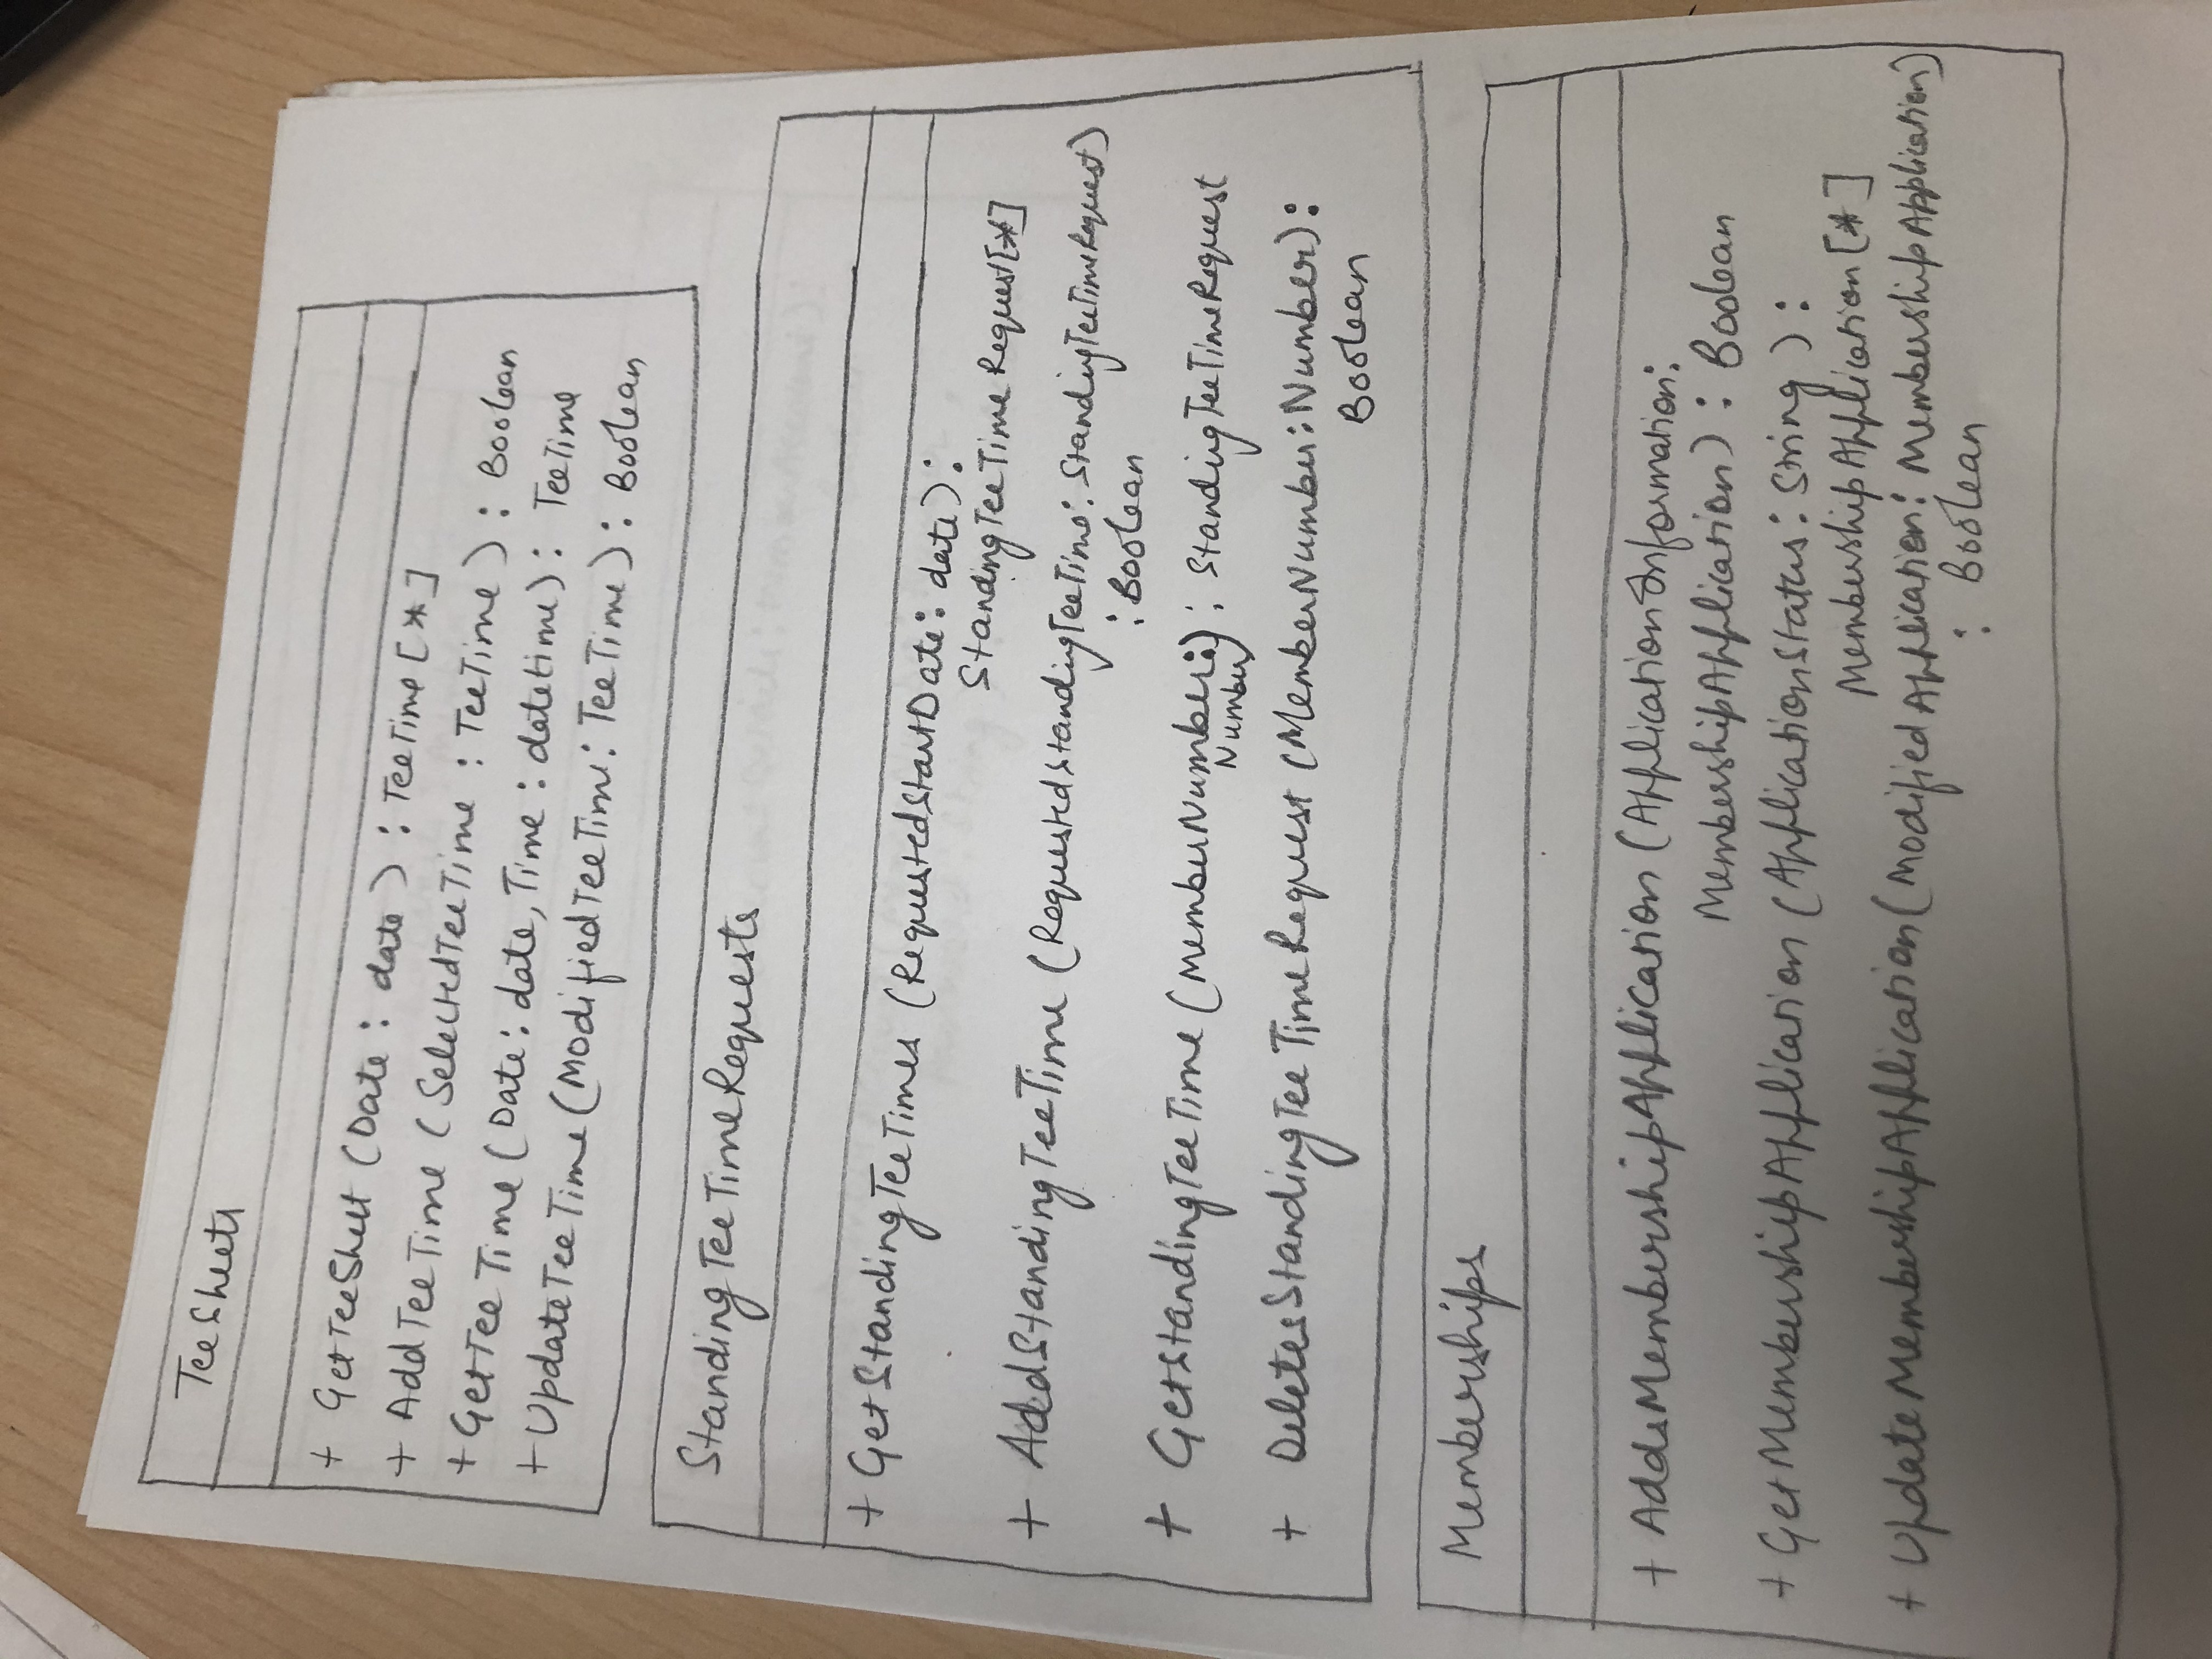 TeeSheets
+ GetTeeSheet (Date : date) : TeeTime [*]
+ AddTeeTime (SelectedTeeTime : TeeTime) : Boolean
+ GetTeeTime (Date : date, Time : datetime) : TeeTime
+ UpdateTeeTime (ModifiedTeeTime : TeeTime) : Boolean
StandingTeeTimeRequests
+ GetStandingTeeTimes (RequestedStartDate : date) :
StandingTeeTimeRequest[*]
+ AddStandingTeeTime (RequestedStandingTeeTime : StandingTeeTimeRequest)
: Boolean
+ GetStandingTeeTime (MemberNumber :) : StandingTeeTimeRequest
Number)
+ DeletesStandingTeeTimeRequest (MemberNumber : Number) :
Boolean
Memberships
+ AddsMembershipApplication (ApplicationInformation :
MembershipApplication) : Boolean
+ GetMembershipApplication (ApplicationStatus : String) :
MembershipApplication [*]
+ UpdateMembershipApplication (ModifiedApplication : MembershipApplication)
: Boolean